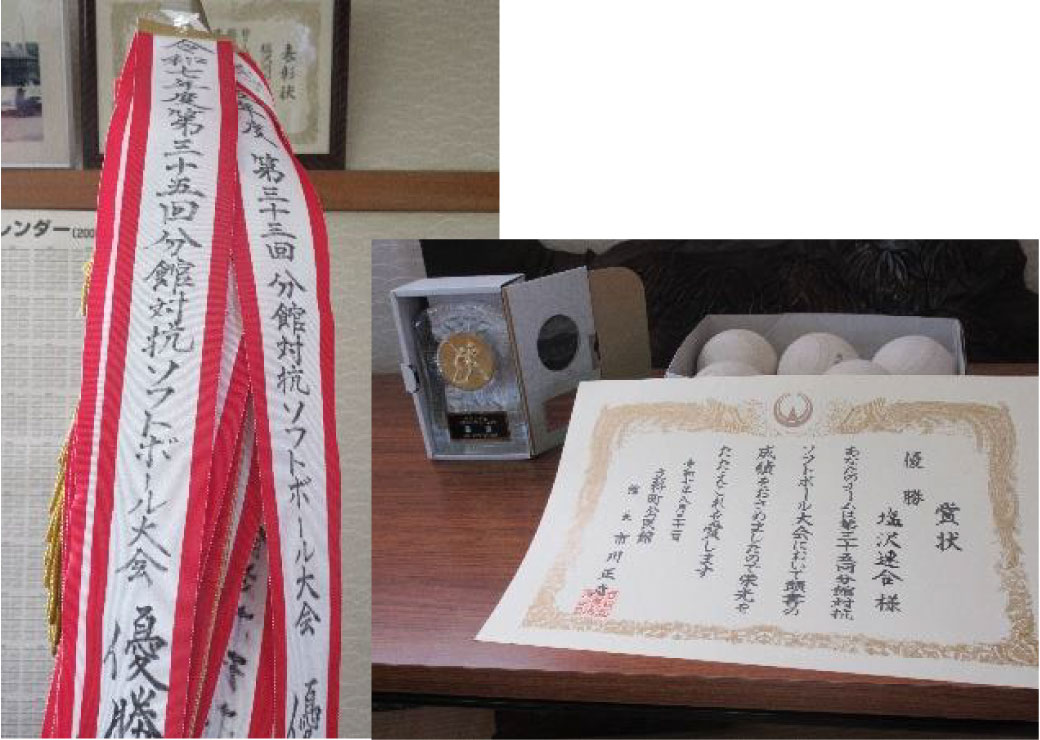 令和七年度第三十五回分館対抗ソフトボール大会 優勝
年度 第三十三回 分館対抗ソフトボール大会 優
表彰状
レンダー(200
賞状
優勝
塩沢連合様
あなたのチームは第三十五回分館対抗
ソフトボール大会において頭書の
成績をおさめましたので栄光を
たたえこれを賞します
令和七年八月三十一日
立科町公民館
館長 市川正